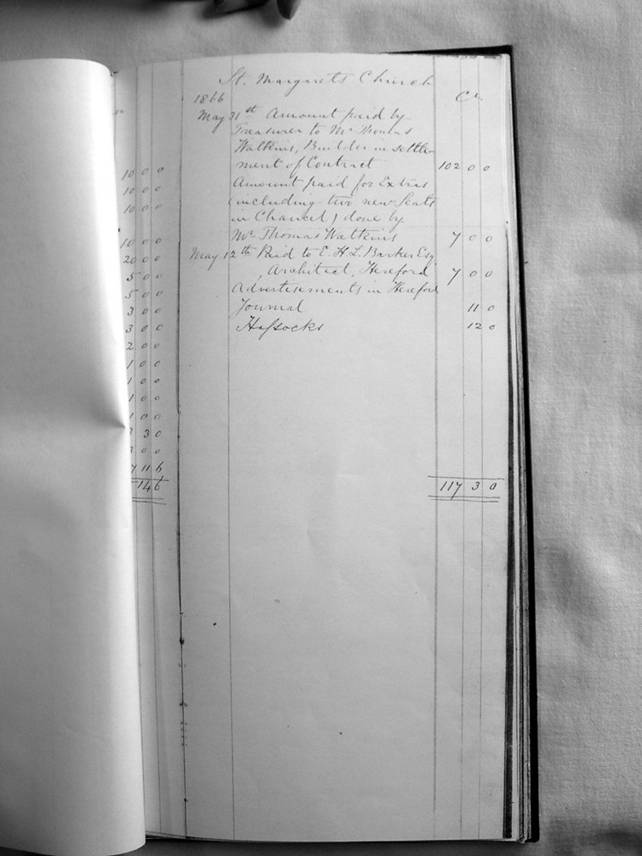 St. Margrets Church
1866 Cr.
May 31st Amount paid by
Treasurer to Mr Thomas
Watkins, Builder in settle
ment of Contract 102 0 0
Amount paid for Extras
(including two new Seats
in Chancel) done by
Mr Thomas Watkins 7 0 0
May 12th Paid to E. H. L. Barker Esq
Architect, Hereford 7 0 0
Advertisements in Hereford
Journal 11 0
Hassocks 12 0
117 3 0
10 0 0
10 0 0
10 0 0
10 0 0
20 0 0
5 0 0
5 0 0
3 0 0
3 0 0
2 0 0
1 0 0
1 0 0
1 0 0
1 0 0
3 0
0 0
11 6
14 6